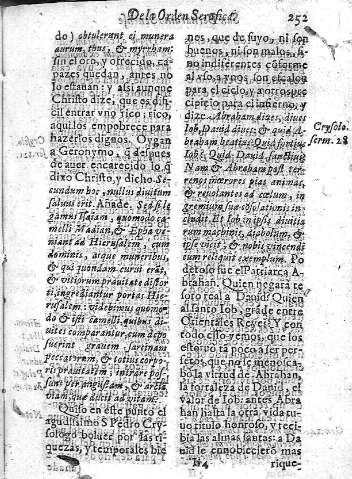 De la Orden Serafica. 252
do) obtulerunt ei munera
aurum, thus, & myrrham:
sin el oro, y ofrecido, ca-
pazes quedan, antes no
lo estauan: y assi aunque
Christo dize, que es dif-
cil entrar vno rico, rico,
aquillos empobrece para
hazerlos dignos. Oygan
a Geronymo, q̃ despues
de auer encarecido lo q̃
dixo Christo, y dicho Se-
cundum hoc, nullus diuitum
saluus erit. Añade. Sed si le
gamus Isaiam, quomodo ca-
meli Madian, & Epha ve-
niant ad Hierusalem, cum
donis, atque muneribus,
& qui quondam curui erãt,
& vitiorum prauitate distor
ti, ingrediantur portas Hie-
rusalem: videbimus quomo-
do & isti cameli, quibus di-
uites comparantur, cum depo
suerint grauem sarcinam
peccatorum, & totius corpo-
ris prauitatem, intrare pos-
sunt per angustam, & arctã
viam, quæ ducit ad vitam.
Quiso en este punto el
agudissimo S. Pedro Cry-
sologo boluer por las ri-
quezas, y temporales bie
nes, que de suyo, ni son
buenos, ni son malos, si-
no indiferentes cõforme
al vso, a vnos son escalon
para el cielo, y a otros pre
cipicio para el infierno, y
dize Abraham diues, diues
Iob, Dauid diues: & quid A-
braham beatius? Quid fortius
Iob? Quid Dauid sanctius?
Nam & Abraham post ter-
renos mœrores pias animas,
& reuolantes ad cœlum, in
gremium suæ cõsolationis in-
cludit. Et Iob in ipsis diuitia
rum machinis, diabolum, &
ipse vicit, & nobis vincendi
eum reliquit exemplum. Po
deroso fue el Patriarca A-
brahan. Quien negarà te-
soro real a Dauid? Quien
al santo Iob, grãde entre
Orientales Reyes? Y con
todo esso vemos, que los
estoruos no a ser per-
fetos, que no le menoscà-
bò la virtud de Abrahan,
la fortaleza de Dauid, el
valor de Iob: antes Abra
han hasta la otra vida tu-
uo titulo honroso, y reci-
bia las almas santas: a Da
uid le ennoblecierõ mas
Crysolo.
serm. 28
Ii 4 rique-